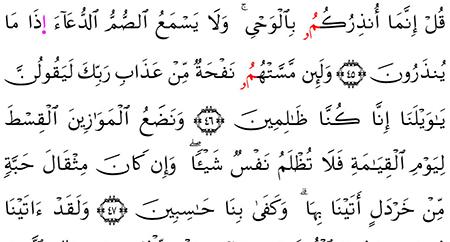 قُلْ إِنَّمَا أُنذِرُكُمُۥ بِالْوَحْيِ ۚ وَلَا يَسْمَعُ الصُّمُّ الدُّعَآءَ اِذَا مَا
يُنذَرُونَ ٤٥ وَلَئِن مَّسَّتْهُمُۥ نَفْحَةٌ مِّنْ عَذَابِ رَبِّكَ لَيَقُولُنَّ
يَٰوَيْلَنَا إِنَّا كُنَّا ظَٰلِمِينَ ٤٦ وَنَضَعُ الْمَوَٰزِينَ الْقِسْطَ
لِيَوْمِ الْقِيَٰمَةِ فَلَا تُظْلَمُ نَفْسٌ شَيْـًٔا ۖ وَإِن كَانَ مِثْقَالَ حَبَّةٍ
مِّنْ خَرْدَلٍ أَتَيْنَا بِهَا ۗ وَكَفَىٰ بِنَا حَٰسِبِينَ ٤٧ وَلَقَدْ ءَاتَيْنَا